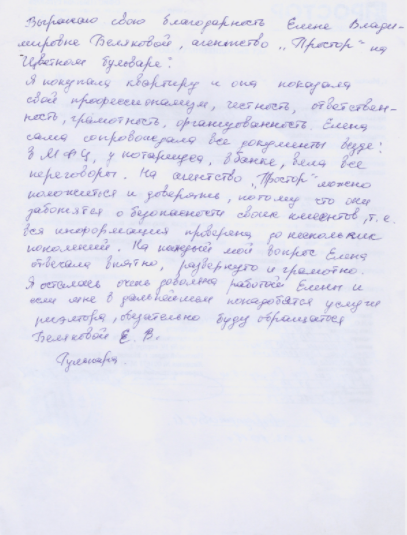 Выражаю свою благодарность Елене Влади-
мировне Беляковой, агентство „Простор" на
Цветном бульваре:
Я покупала квартиру и она показала
свой профессионализм, честность, ответствен-
ность, грамотность, организованность. Елена
сама сопровождала все документы везде:
в МФЦ, у нотариуса, в банке, вела все
переговоры. На агентство „Простор" можно
положиться и доверять, потому что они
заботятся о безопасности своих клиентов, т.е.
вся информация проверена до нескольких
поколений. На каждый мой вопрос Елена
отвечала внятно, развернуто и грамотно.
Я осталась очень довольна работой Елены и
если мне в дальнейшем понадобятся услуги
риэлтора, обязательно буду обращаться
Беляковой Е. В.
Гульнара.